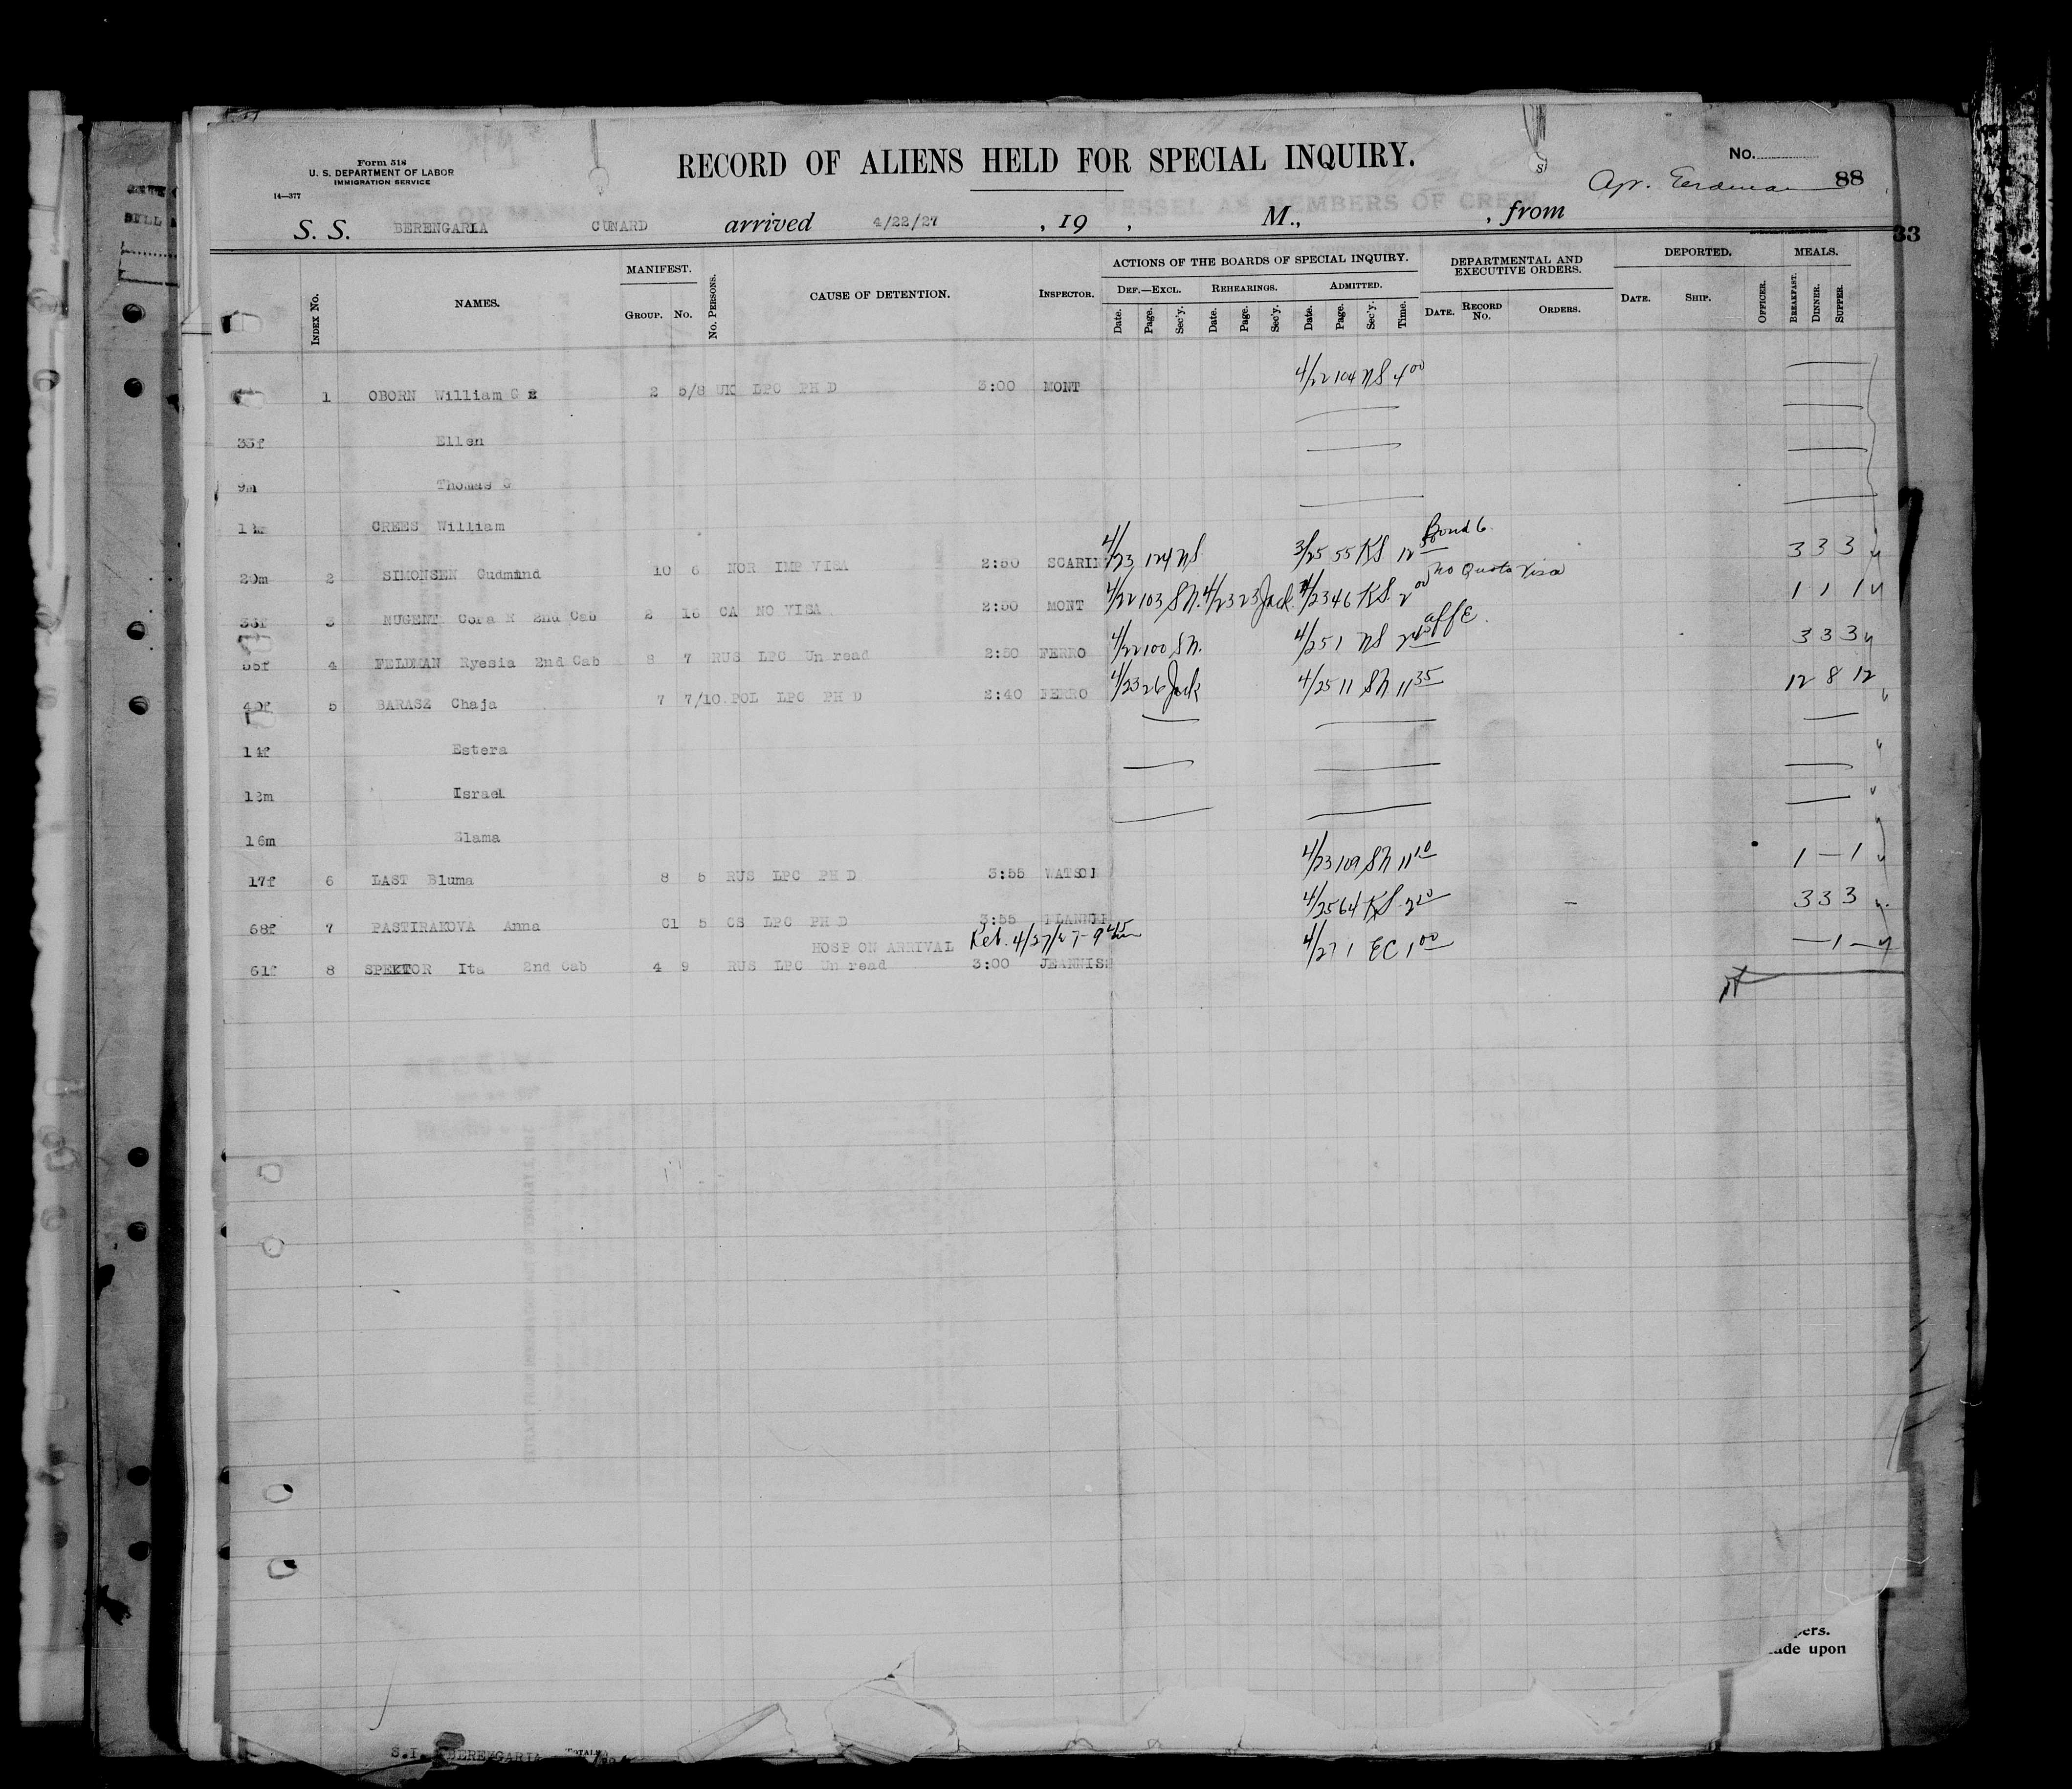 Form 518
U. S. DEPARTMENT OF LABOR
IMMIGRATION SERVICE
14—377
RECORD OF ALIENS HELD FOR SPECIAL INQUIRY.
No.
88
S. S. BERENGARIA CUNARD arrived 4/22/27 , 19 , M., , from
33
INDEX No. NAMES. MANIFEST. GROUP. No. No. PERSONS. CAUSE OF DETENTION. INSPECTOR. ACTIONS OF THE BOARDS OF SPECIAL INQUIRY. DEF.—EXCL. Date. Page. Sec'y. REHEARINGS. Date. Page. Sec'y. ADMITTED. Date. Page. Sec'y. Time. DEPARTMENTAL AND EXECUTIVE ORDERS. DATE. RECORD No. ORDERS. DEPORTED. DATE. SHIP. OFFICER. MEALS. BREAKFAST. DINNER. SUPPER.
1 OBORN William G 2 5/8 UK LPC PH D 3:00 MONT 4/22 104 NS 4 00
33f Ellen
9m Thomas G
CREES William
29m 2 SIMONSEN Gudmund 10 6 NOR IMP VISA 2:50 SCARIN 4/23 124 NS 3/25 55 KS 12 Bond 6. 3 3 3
3 NUGENT Cora 2nd Cab 2 CA NO VISA 2:50 MONT 4/22 103 SN. 4/23 23 Jack. 4/23 46 KS. 2 00 no Quota Visa 1 1 1
4 FELDMAN Ryesia 2nd Cab 8 7 RUS LPC Un read 2:50 FERRO 4/22 100 SN. 4/25 1 NS aff E. 3 3 3
40f 5 BARASZ Chaja 7 7/10 POL LPC PH D 2:40 FERRO 4/23 26 Jack 4/25 11 SN 11 35 12 8 12
14f Estera
12m Israel
16m Slama
17f 6 LAST Bluma 8 5 RUS LPC PH D 3:55 WATSON 4/23 109 SN 11 10 1 — 1
68f 7 PASTIRAKOVA Anna C1 5 CS LPC PH D 3:55 4/25 64 KS 3 3 3
HOSP ON ARRIVAL Ret. 4/27/27-9 45 am
61f 8 SPEKTOR Ita 2nd Cab 4 9 RUS LPC Un read 3:00 JEANNISS 4/27 1 EC 1 00 — 1 —
ade upon
S.I. BERENGARIA TOTALS